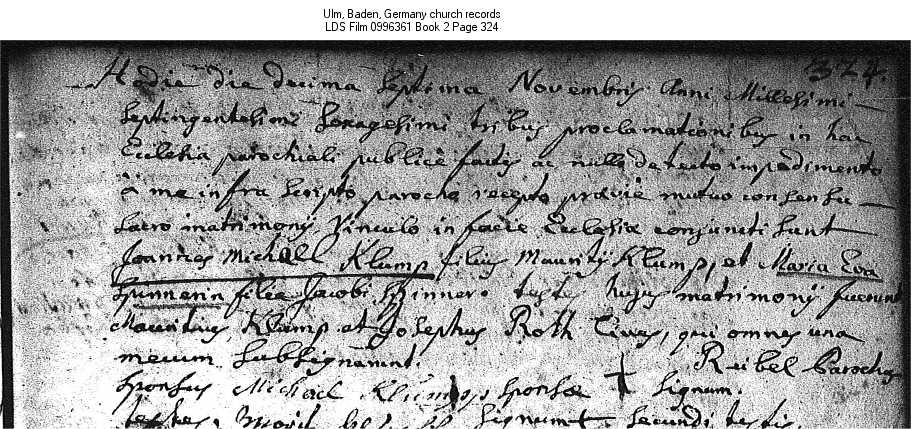 Ulm, Baden, Germany church records
LDS Film 0996361 Book 2 Page 324
324.
Hodie die decima septima Novembris Anni Millesimi
septingentesimi sexagesimi tribus proclamationibus in hac
Ecclesia parochiali publice factis ac nullo detecto impedimento
à me infra scripto parocho recepto prævie mutuo consensu
sacro matrimonij vinculo in facie Ecclesiæ conjuncti sunt
Joannes Michael Klump filius Mauritij Klump, et Maria Eva
Spinnerin filia Jacobi Spinner testes hujus matrimonij fuerunt
Mauritius Klump et Josephus Roth Cives, qui omnes una
mecum subsignarunt.
Reibel Parochus
sponsus Michael Klump sponsæ + signum.
testes, Moritz signum + secundi testis.